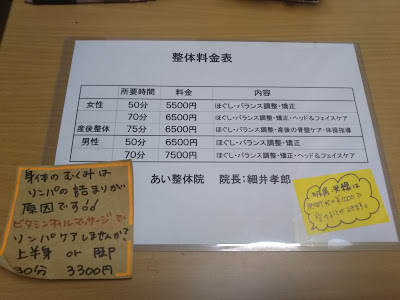 整体料金表
所要時間 料金 内容
女性 50分 5500円 ほぐし・バランス調整・矯正
70分 6500円 ほぐし・バランス調整・矯正・ヘッド&フェイスケア
産後整体 75分 6500円 ほぐし・バランス調整・産後の骨盤ケア・体操指導
男性 50分 6500円 ほぐし・バランス調整・矯正
70分 7500円 ほぐし・バランス調整・矯正・ヘッド&フェイスケア
あい整体院 院長:細井孝郎
身体のむくみは
リンパの詰まりが
原因です
ビタミンオイルマッサージで
リンパケアしませんか?
上半身 or 脚
30分 3300円